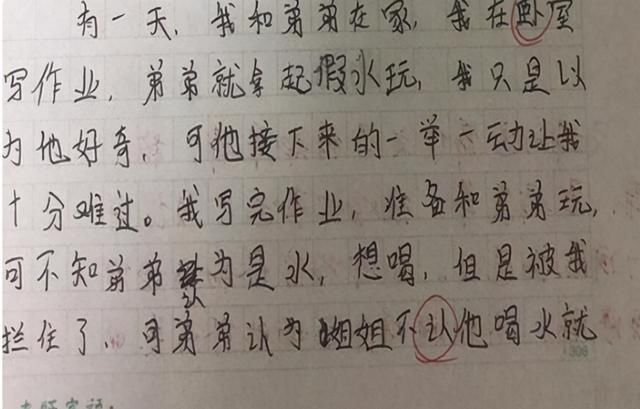 有一天，我和弟弟在家，我在卧室
写作业，弟弟就拿起假水玩，我只是以
为他好奇，可他接下来的一举一动让我
十分难过。我写完作业，准备和弟弟玩，
可不知弟弟认为是水，想喝，但是被我
拦住了，可弟弟认为姐姐不认他喝水就
306